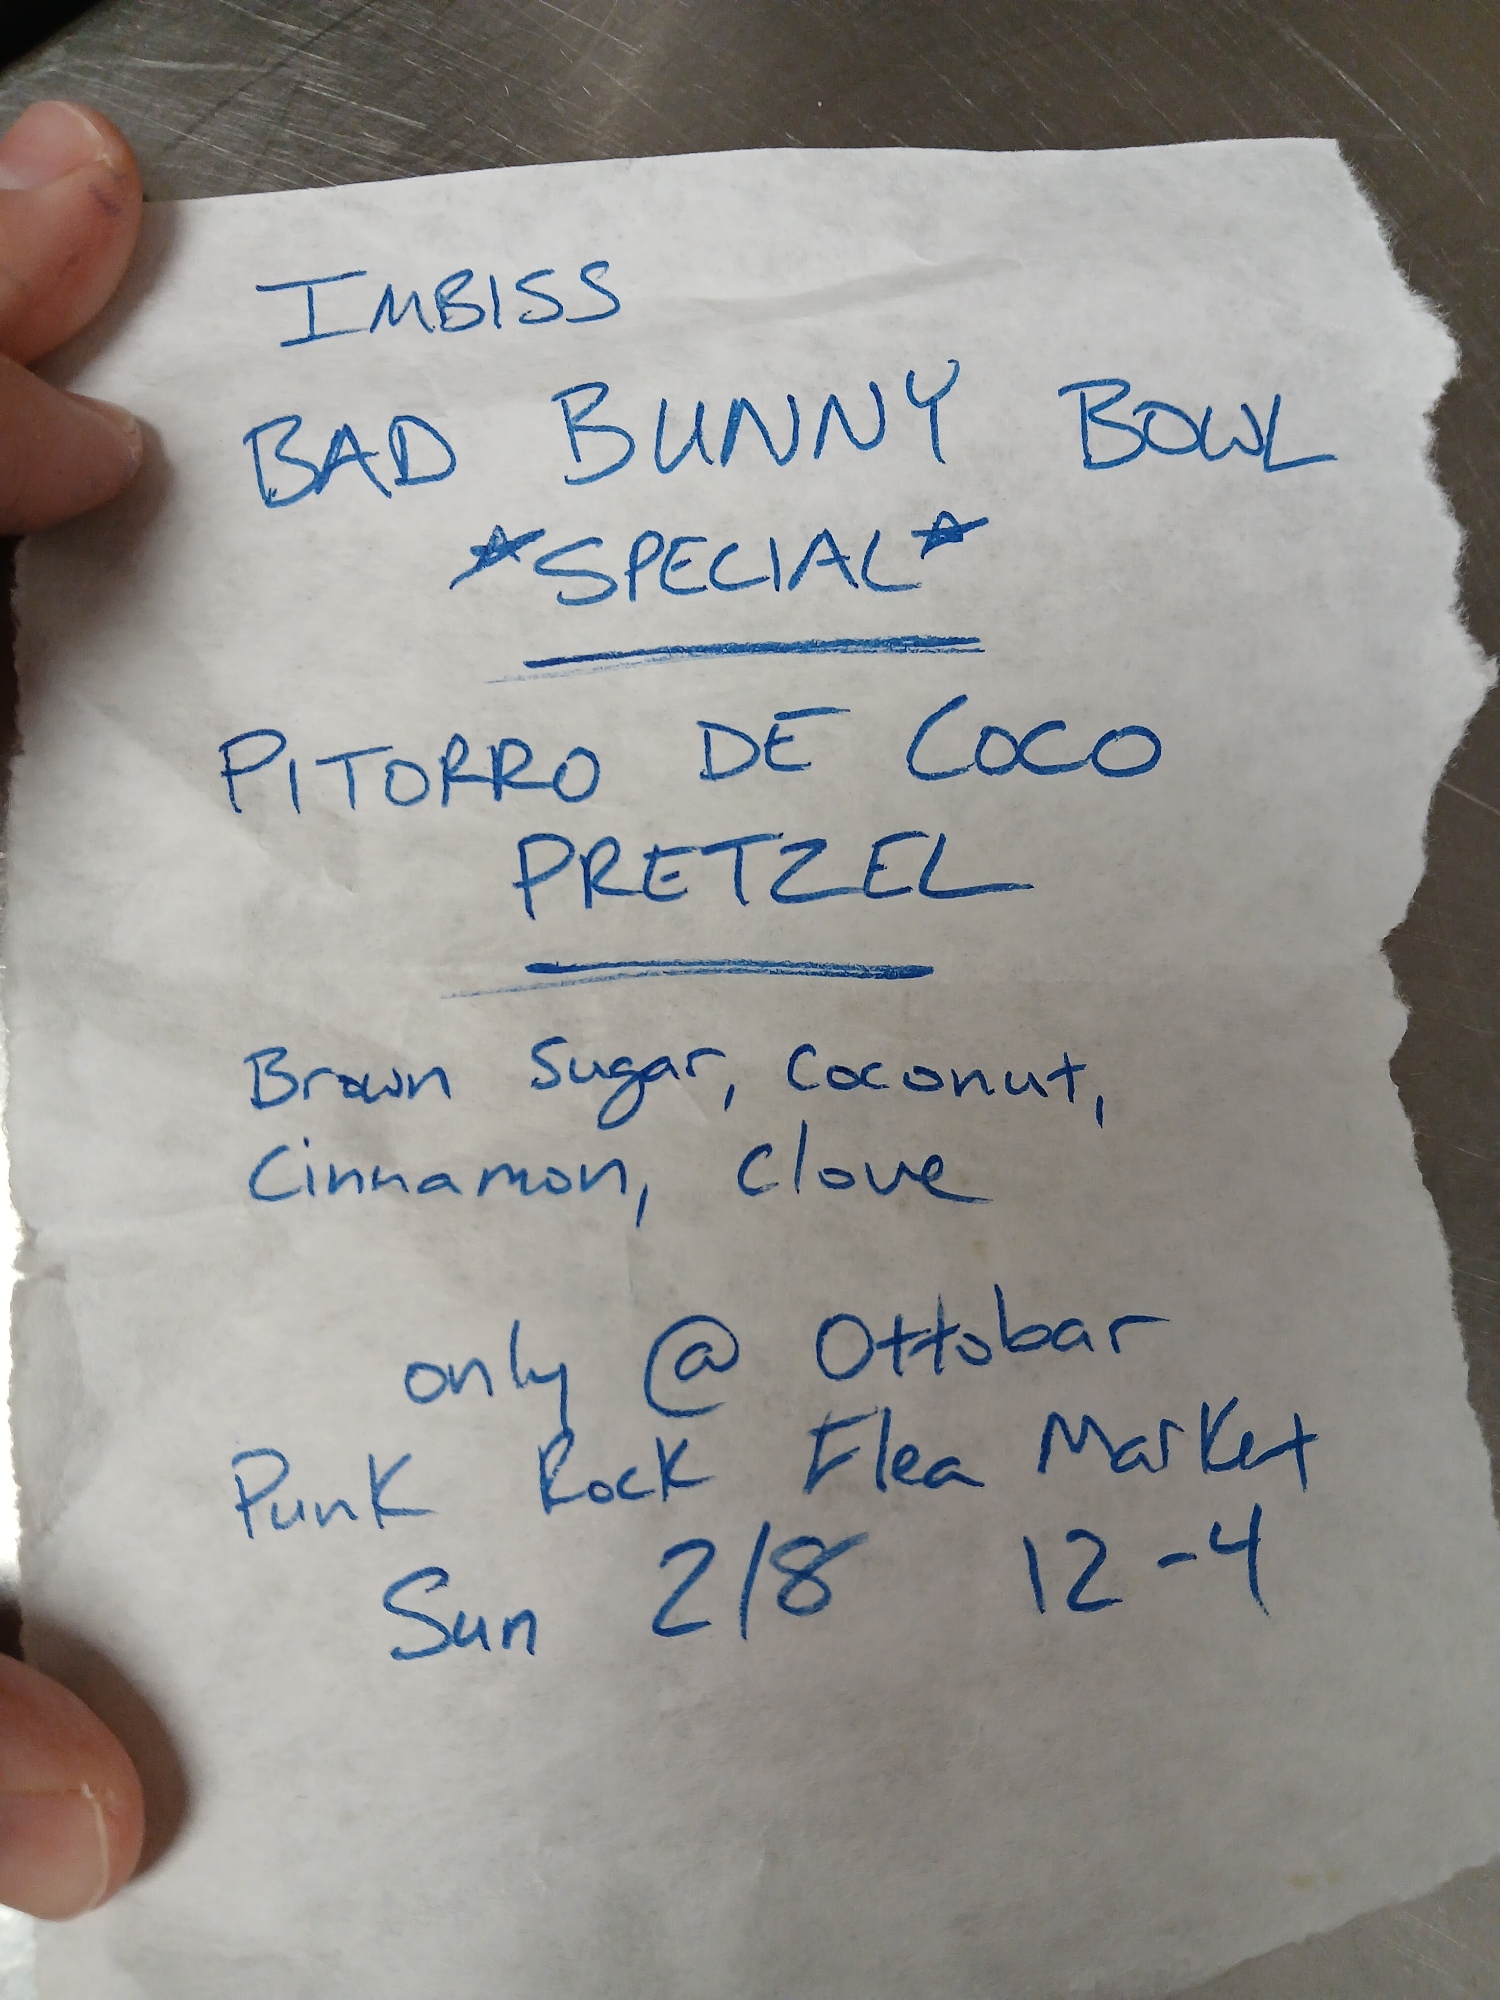 IMBISS
BAD BUNNY BOWL
*SPECIAL*
PITORRO DE COCO
PRETZEL
Brown Sugar, Coconut,
Cinnamon, Clove
only @ Ottobar
Punk Rock Flea Market
Sun 2/8 12-4